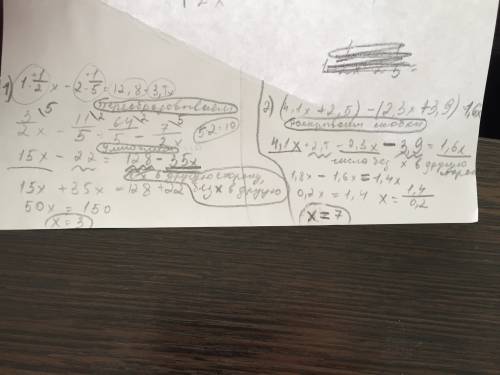 1) 1 1/2 x - 2 1/5 = 12,8 - 3,5x
преобразовываем
3/2 x - 11/5 = 64/5 - 7/2 x
5·2=10
умножаем
15x - 22 = 128 - 35x
x в другую сторону, без x в другую
15x + 35x = 128 + 22
50x = 150
x = 3
2) (4,1x + 2,5) - (2,3x + 3,9) = 1,6x
раскрываем скобки
4,1x + 2,5 - 2,3x - 3,9 = 1,6x
числа без x в другую сторону
1,8x - 1,6x = 1,4
0,2x = 1,4 x = 1,4/0,2
x = 7